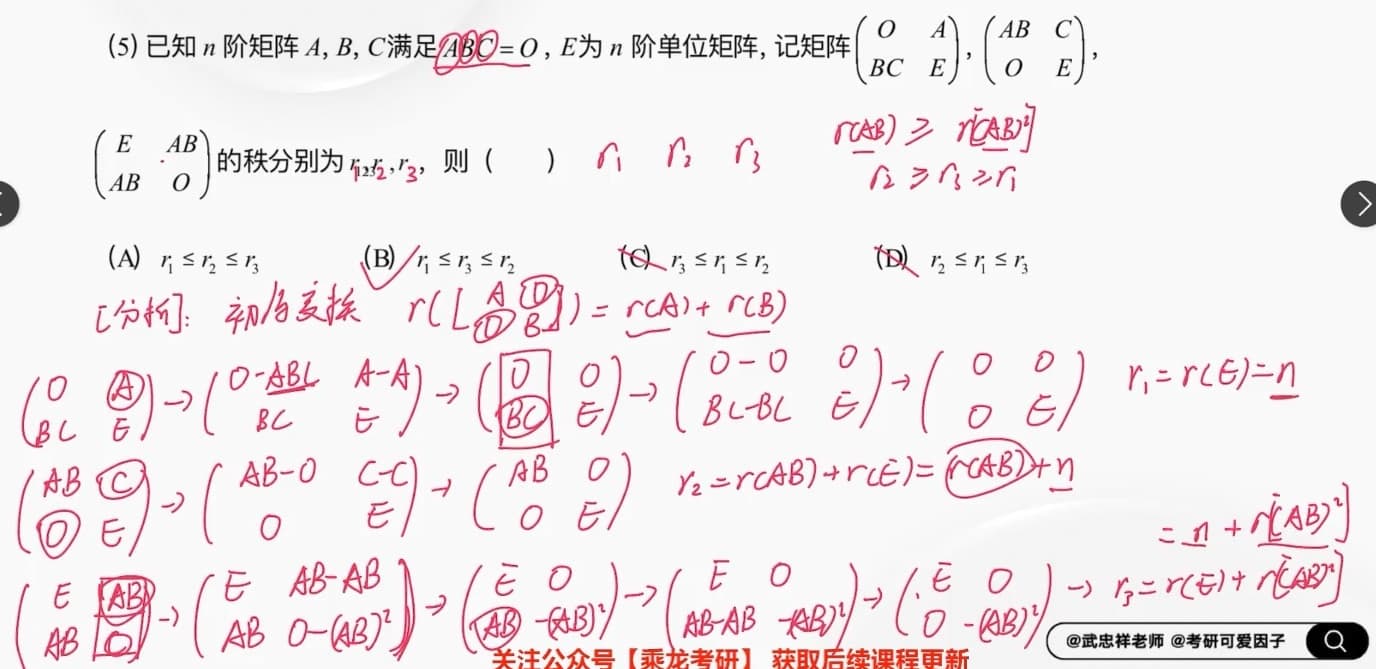 (5) 已知 n 阶矩阵 A, B, C满足ABC = O , E为 n 阶单位矩阵, 记矩阵 (O A; BC E), (AB C; O E),
(E AB; AB O) 的秩分别为 r₁,r₂,r₃, 则 ( ) r₁ r₂ r₃ r(AB) ≥ r[(AB)²]
r₂ ≥ r₃ ≥ r₁
(A) r₁ ≤ r₂ ≤ r₃ (B) r₁ ≤ r₃ ≤ r₂ (C) r₃ ≤ r₁ ≤ r₂ (D) r₂ ≤ r₁ ≤ r₃
[分析]: 初等变换 r([A O; O B]) = r(A) + r(B)
(O A; BC E) → (O-ABC A-A; BC E) → (O O; BC E) → (O-O O; BC-BC E) → (O O; O E) r₁ = r(E) = n
(AB C; O E) → (AB-O C-C; O E) → (AB O; O E) r₂ = r(AB) + r(E) = r(AB) + n
= n + r[(AB)²]
(E AB; AB O) → (E AB-AB; AB O-(AB)²) → (E O; AB -(AB)²) → (E O; AB-AB -(AB)²) → (E O; O -(AB)²) → r₃ = r(E) + r[(AB)²]
@武忠祥老师 @考研可爱因子
关注公众号【乘龙考研】 获取后续课程更新